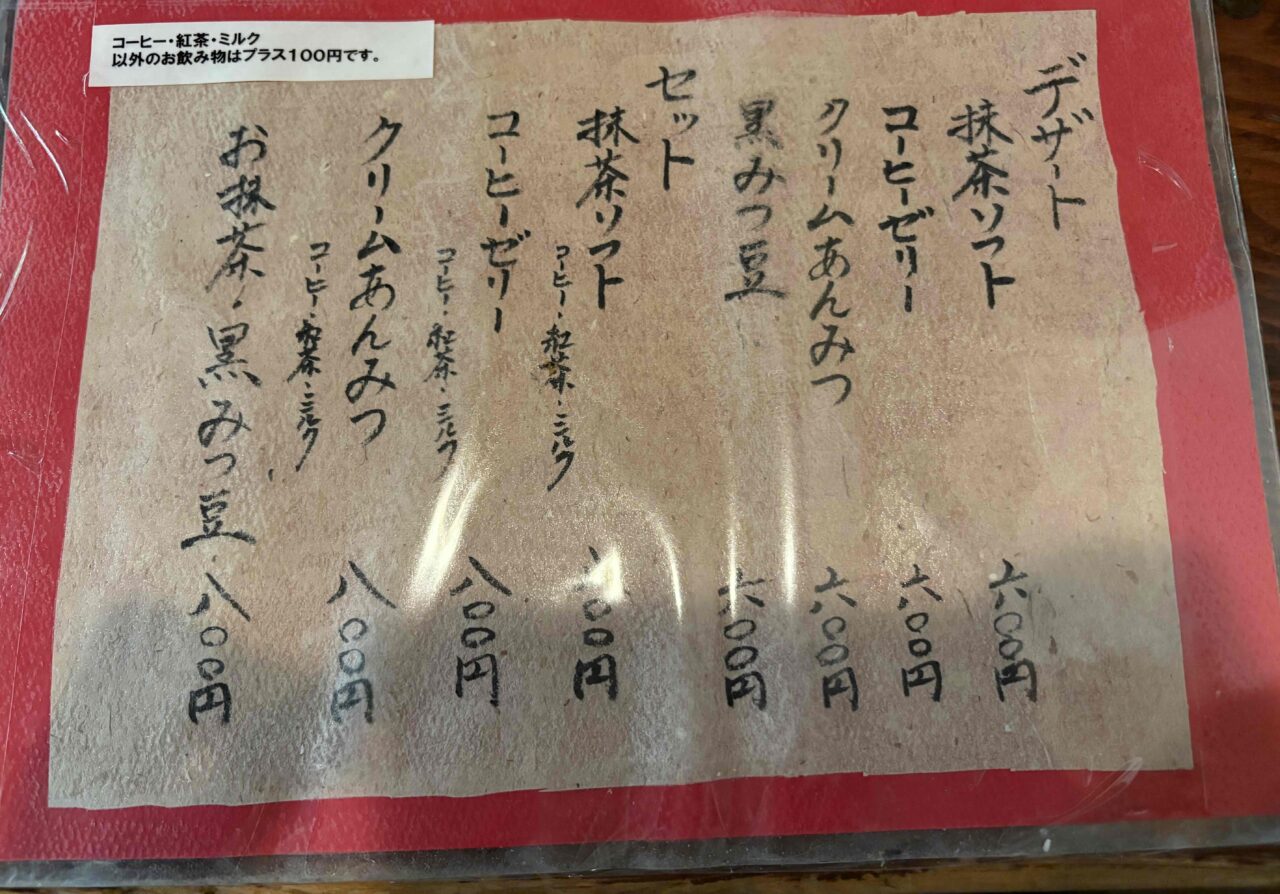 コーヒー・紅茶・ミルク
以外のお飲み物はプラス100円です。
デザート
抹茶ソフト 六〇〇円
コーヒーゼリー 六〇〇円
クリームあんみつ 六〇〇円
黒みつ豆 六〇〇円
セット
抹茶ソフト 〇〇円
コーヒー・紅茶・ミルク
コーヒーゼリー 八〇〇円
コーヒー・紅茶・ミルク
クリームあんみつ 八〇〇円
コーヒー・紅茶・ミルク
お抹茶・黒みつ豆 八〇〇円